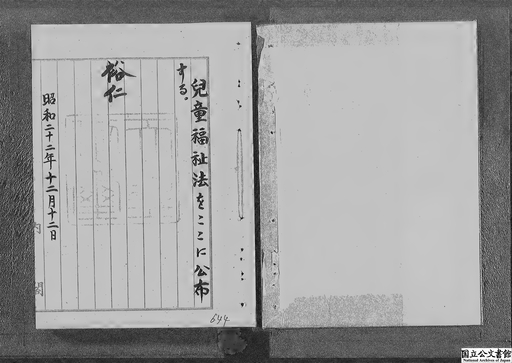 兒童福祉法をここに公布
する。
裕仁
昭和二十二年十二月十二日
内閣
644
国立公文書館
National Archives of Japan